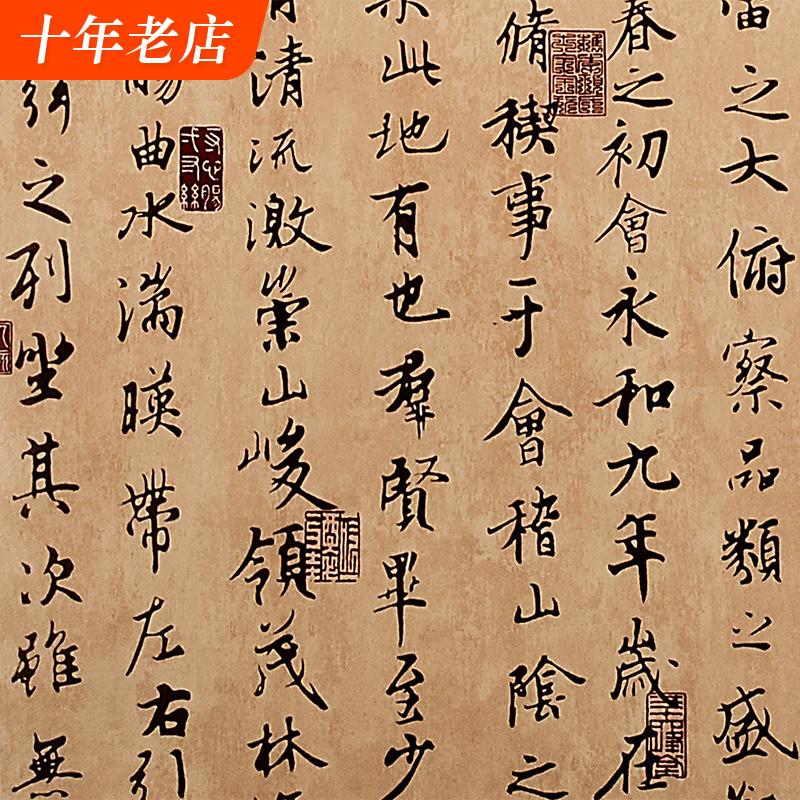 十年老店
宙之大俯察品類之盛
春之初會永和九年歲在
脩稧事于會稽山陰之
此地有也羣賢畢至少
清流激崇山峻領茂林
觴曲水湍暎帶左右引
之列坐其次雖無